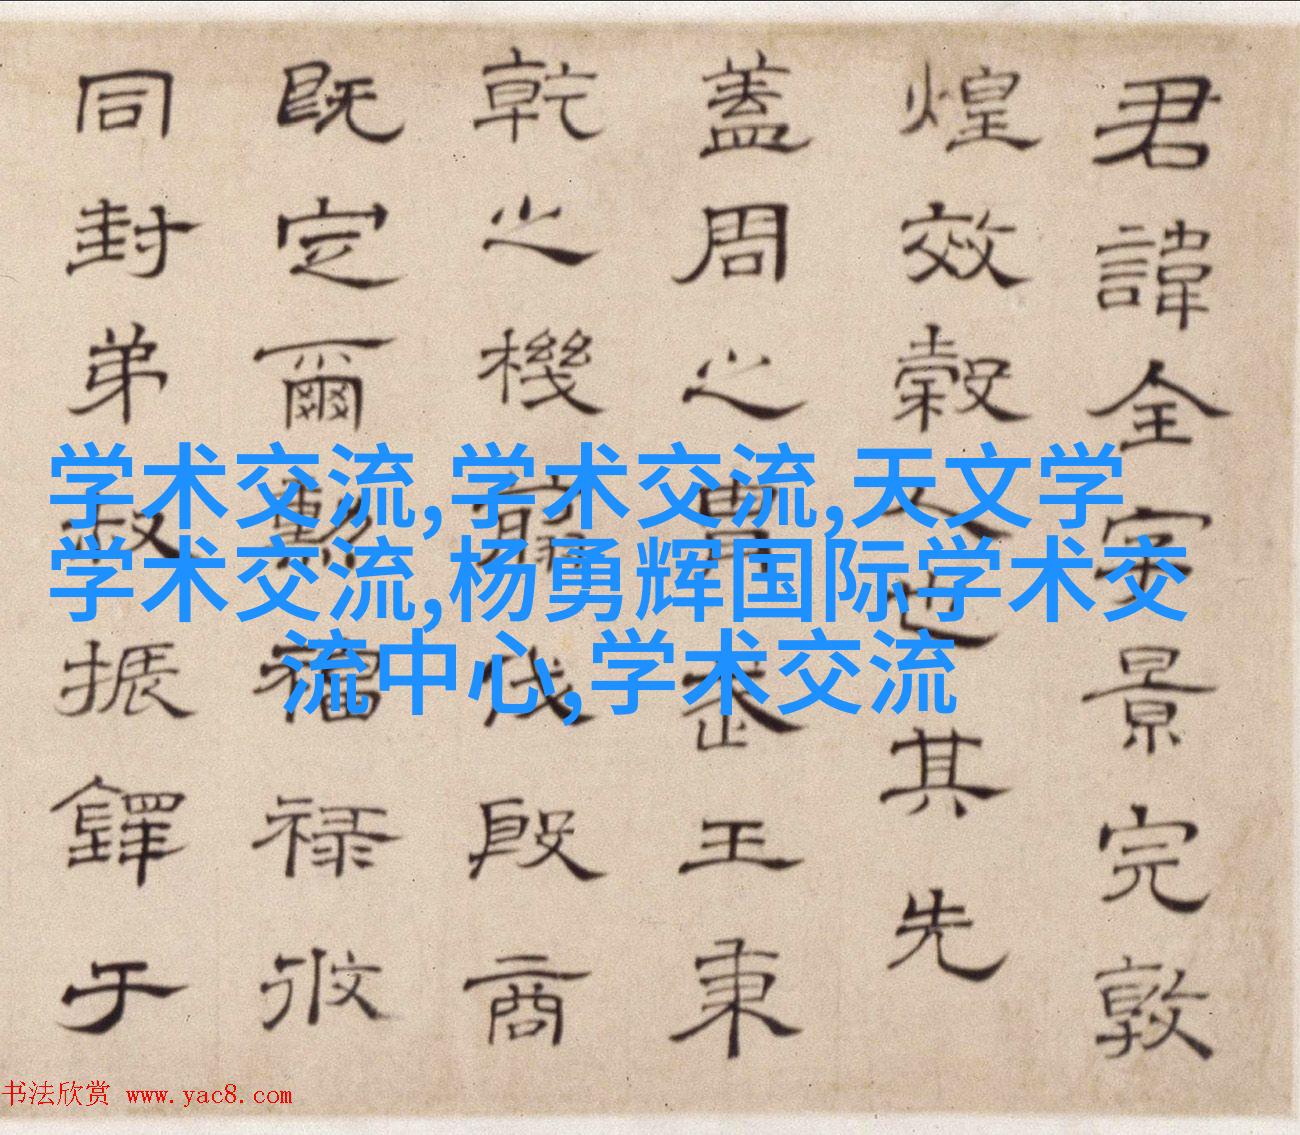 君諱全字景完敦
煌效穀人也其先
蓋周之胄武王秉
乾之機翦伐殷商
既定爾勳福祿攸
同封弟叔振鐸于
学术交流,学术交流,天文学
学术交流,杨勇辉国际学术交
流中心,学术交流
书法欣赏 www.yac8.com